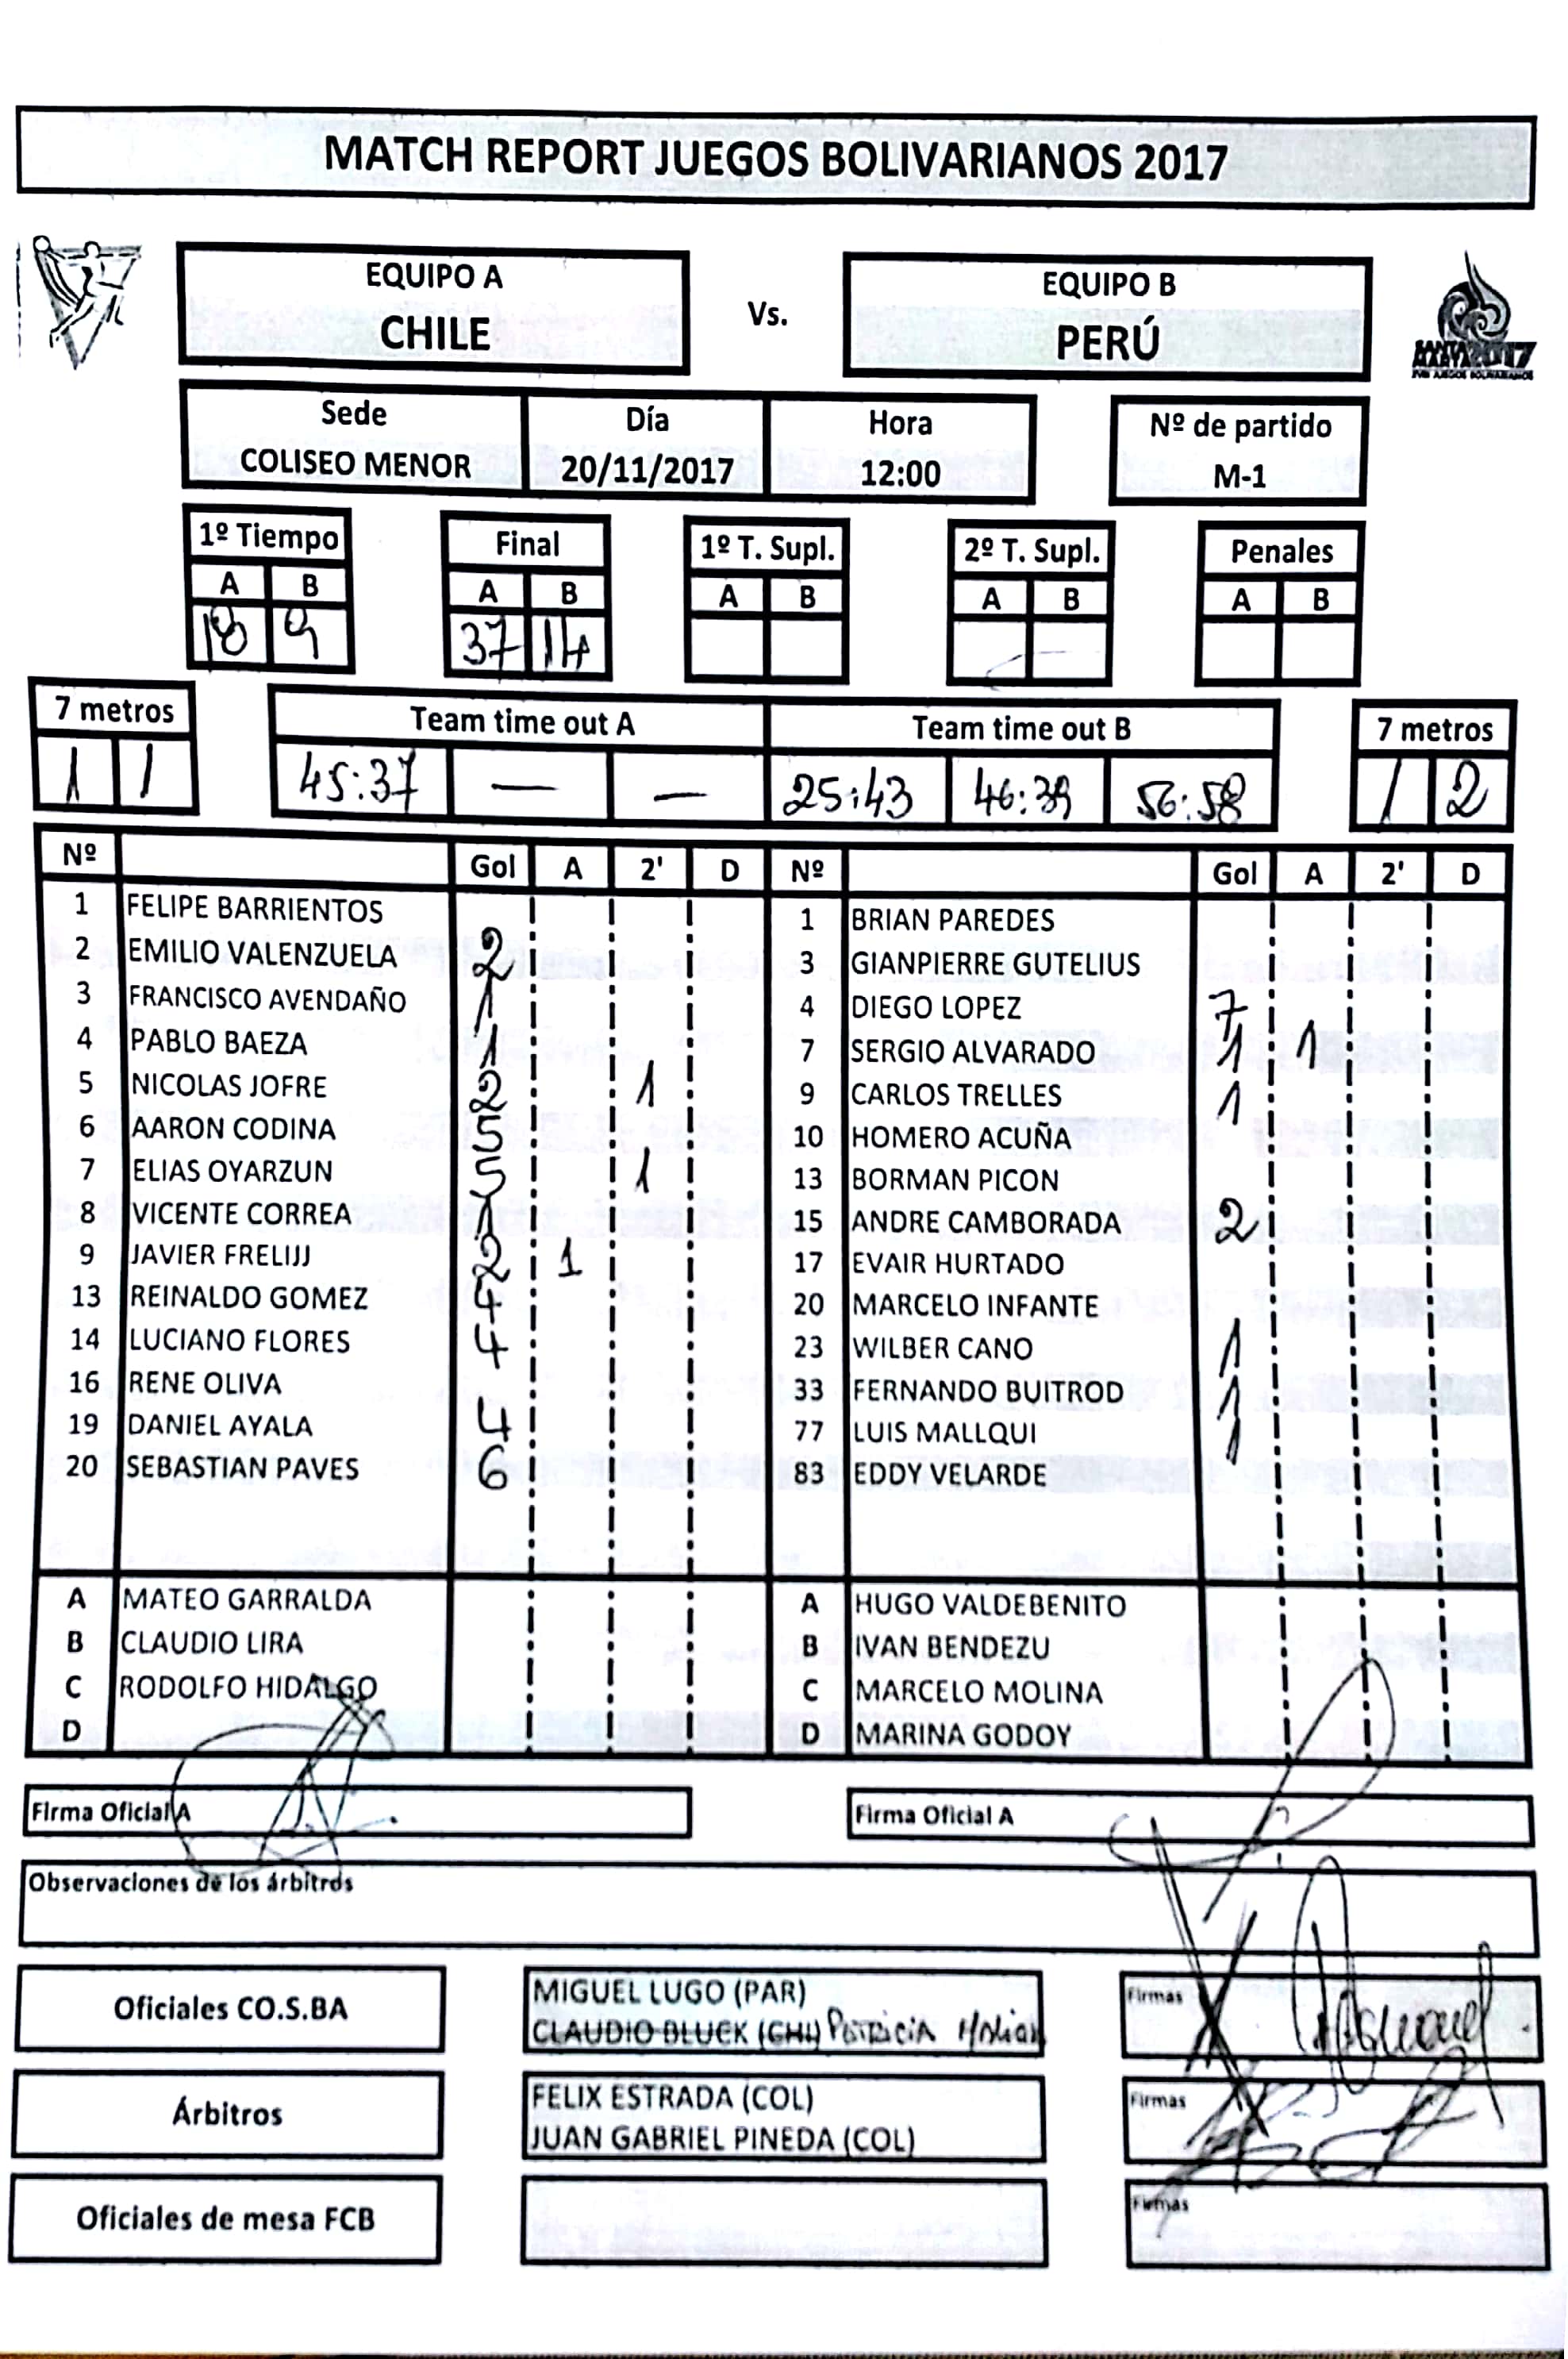 MATCH REPORT JUEGOS BOLIVARIANOS 2017
EQUIPO A
CHILE
Vs.
EQUIPO B
PERÚ
SANTA MARTA 2017
XVIII JUEGOS BOLIVARIANOS
Sede Día Hora Nº de partido
COLISEO MENOR 20/11/2017 12:00 M-1
1º Tiempo Final 1º T. Supl. 2º T. Supl. Penales
A B A B A B A B A B
18 9 37 14
7 metros Team time out A Team time out B 7 metros
1 1 45:37 — — 25:43 46:39 56:58 1 2
Nº Gol A 2' D Nº Gol A 2' D
1 FELIPE BARRIENTOS 1 BRIAN PAREDES
2 EMILIO VALENZUELA 2 3 GIANPIERRE GUTELIUS
3 FRANCISCO AVENDAÑO 1 4 DIEGO LOPEZ 7
4 PABLO BAEZA 1 7 SERGIO ALVARADO 1 1
5 NICOLAS JOFRE 2 1 9 CARLOS TRELLES 1
6 AARON CODINA 5 10 HOMERO ACUÑA
7 ELIAS OYARZUN 5 1 13 BORMAN PICON
8 VICENTE CORREA 15 ANDRE CAMBORADA 2
9 JAVIER FRELIJJ 2 1 17 EVAIR HURTADO
13 REINALDO GOMEZ 4 20 MARCELO INFANTE
14 LUCIANO FLORES 4 23 WILBER CANO 1
16 RENE OLIVA 33 FERNANDO BUITROD 1
19 DANIEL AYALA 4 77 LUIS MALLQUI 1
20 SEBASTIAN PAVES 6 83 EDDY VELARDE
A MATEO GARRALDA A HUGO VALDEBENITO
B CLAUDIO LIRA B IVAN BENDEZU
C RODOLFO HIDALGO C MARCELO MOLINA
D D MARINA GODOY
Firma Oficial A Firma Oficial A
Observaciones de los árbitros
Oficiales CO.S.BA
MIGUEL LUGO (PAR)
CLAUDIO BLUCK (CHI) Patricia
Firmas
Árbitros
FELIX ESTRADA (COL)
JUAN GABRIEL PINEDA (COL)
Firmas
Oficiales de mesa FCB
Firmas